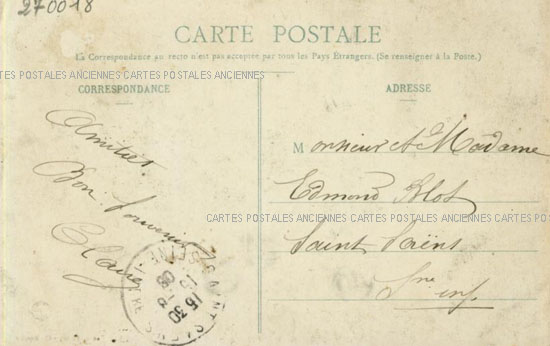 270018
CARTE POSTALE
La Correspondance au recto n'est pas acceptée par tous les Pays Étrangers. (Se renseigner à la Poste.)
CARTES POSTALES ANCIENNES CARTES POSTALES ANCIENNES
CORRESPONDANCE
Amitiés.
Bon Souvenir
Claire
15 30
ADRESSE
Monsieur et Madame
Edmond Blot
CARTES POSTALES ANCIENNES CARTES POSTALES ANCIENNES CARTES POSTALES
Saint Saëns
Sne inf.